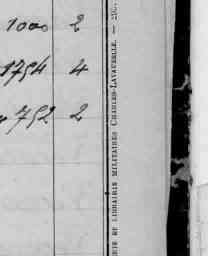 1000 2
1794 4
752 2
RIE ET LIBRAIRIE MILITAIRES CHARLES-LAVAUZELLE. —